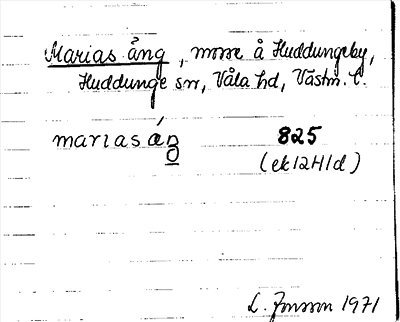 Marias äng, mosse å Huddungeby,
Huddunge sn, Våla hd, Västm. l.
mariasáŋ̲ 825
(ek12H1d)
L. Jonsson 1971